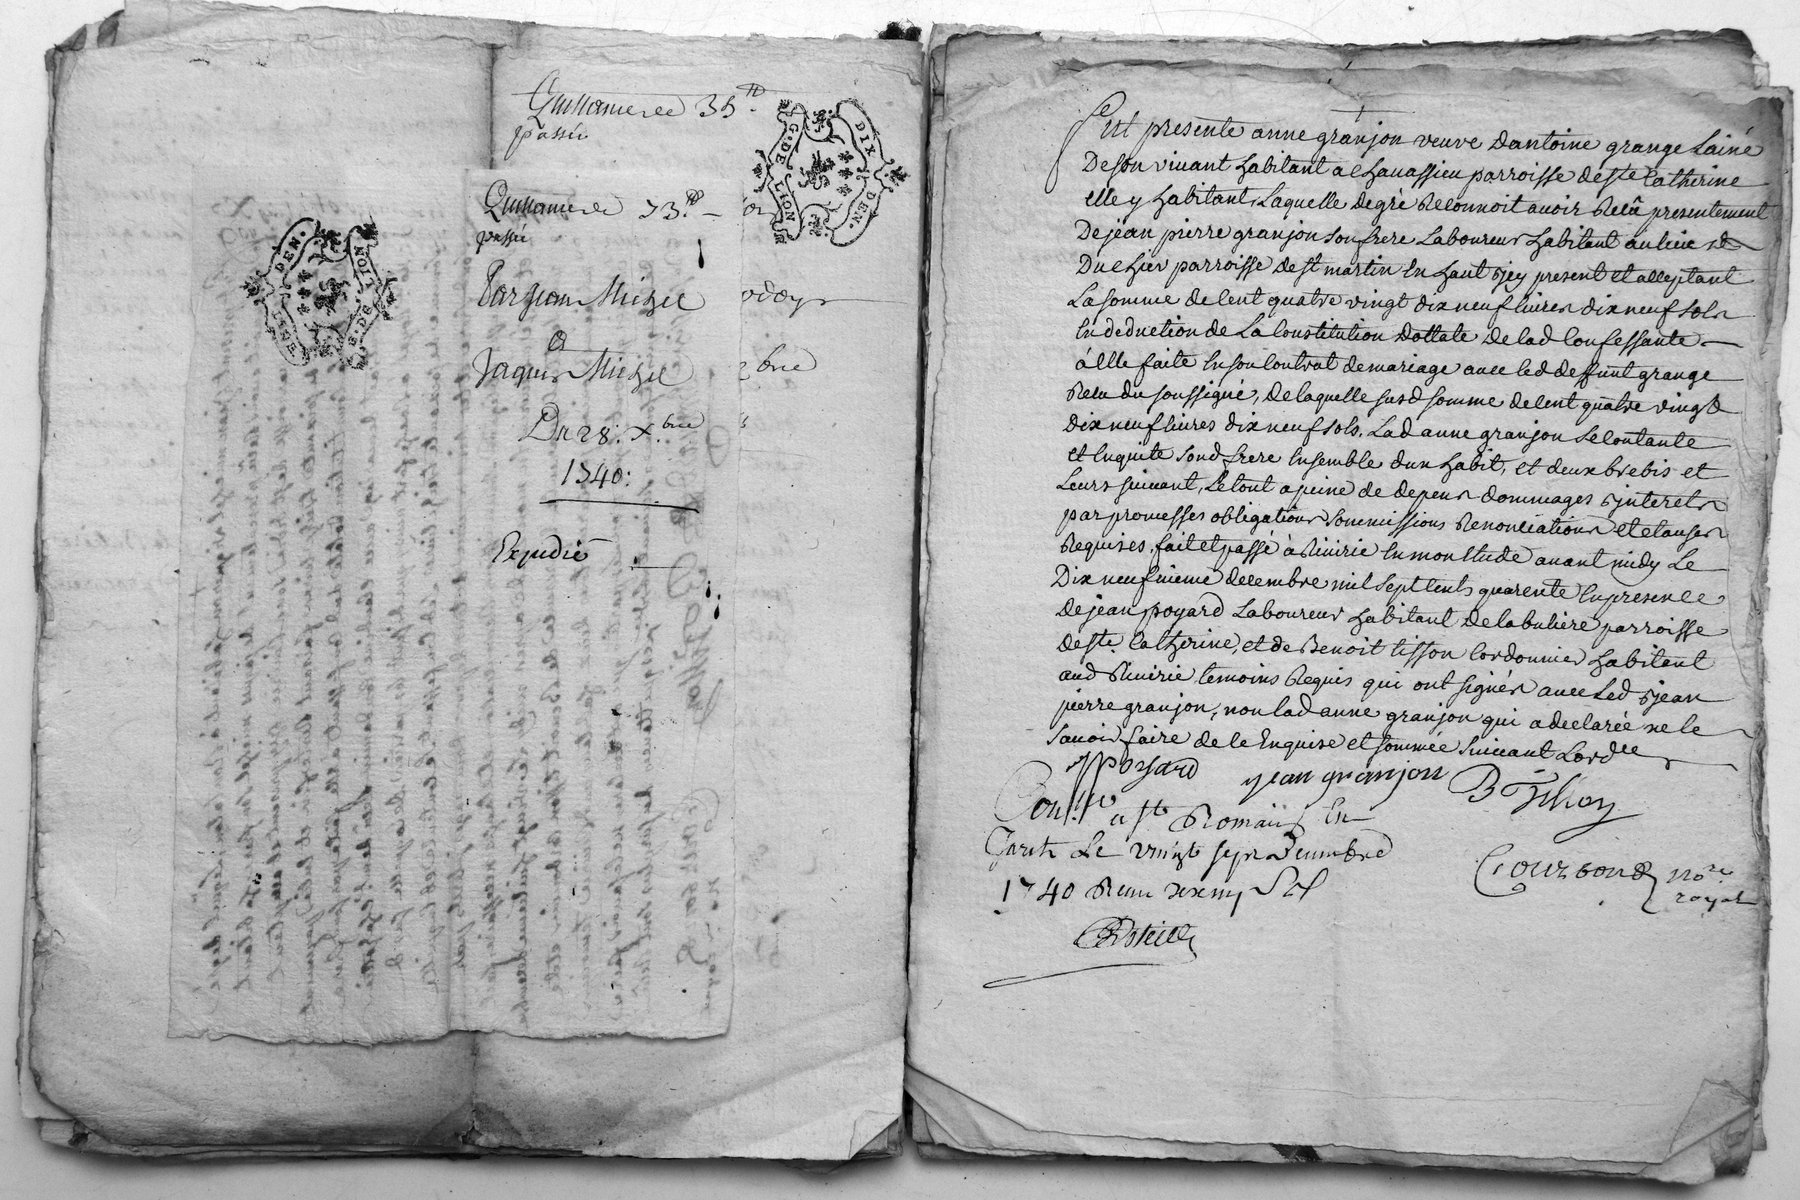 Quittance de 35 ₶
passée
Quittance de 73 ₶
passée
Par Jean Michel
a
Jaques Michel
Du 28: Xbre
1740:
Expedié
G. DE LION
DIX DEN.
DEN.
G. DE LION
Fut presente anne granjon veuve dantoine grange Lainé
De son vivant habitant a Chavassieu parroisse de ste Catherine
elle y habitant, Laquelle de gré Reconnoit avoir Recû presentement
De jean pierre granjon son frere Laboureur habitant au lieu
Du Chier parroisse de st martin En haut Icy present et acceptant
La somme de Cent quatre vingt dix neuf livres dix neuf sols
En deduction de La Constitution Dottale de lad Confessante
à Elle faite En son Contrat de mariage avec led deffunt grange
Receu du soussigné, de laquelle susd somme de Cent quatre vingt
dix neuf livres dix neuf sols, Lad anne granjon se Contante
et En quite sond frere Ensemble dun habit, et deux brebis et
Leurs suivant, Le tout a peine de depens dommages Interets
par promesses obligations soumissions Renonciations et clauses
Requises, fait et passé à Riverie En mon Etude avant midy Le
Dix neufvieme decembre mil sept Cents quarente En presence
de jean poyard Laboureur habitant de la buliere parroisse
de ste Catherine, et de Benoit tisson Cordonnier habitant
aud Riverie temoins Requis qui ont signés avec Led Jean
pierre granjon, non lad anne granjon qui a declarée ne le
savoir faire de ce Enquise et sommée suivant Lordce
J poyard jean granjon B Tisson
Conllé a st Romain En
Jarest Le vingt sept Decembre
1740 Receu
Courbon nore
royal